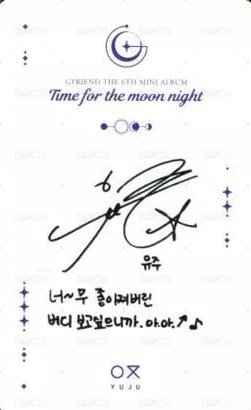 GFRIEND THE 6TH MINI ALBUM
Time for the moon night
유주
너~무 좋아져버린
버디 보고싶으니까. 아아.↗♪
YUJU